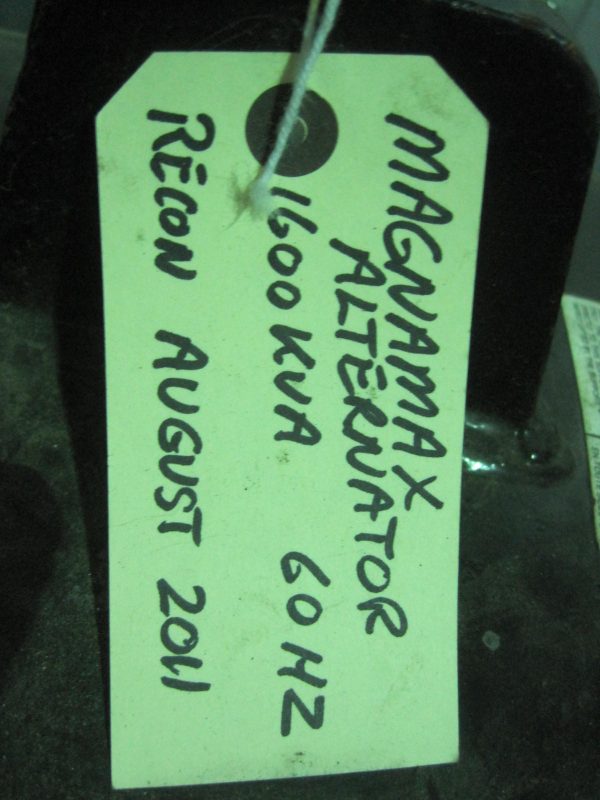 MAGNAMAX
ALTERNATOR
1600 KVA 60 HZ
RECON AUGUST 2011